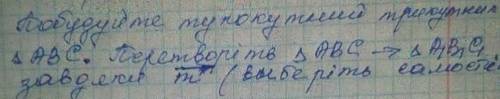 Побудуйте тупокутний трикутник
△ABC. Перетворіть △ABC → △A₁B₁C₁
завдяки m⃗ (виберіть самості